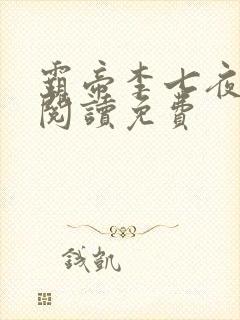 霸帝李七夜
閱讀免費
錢凱